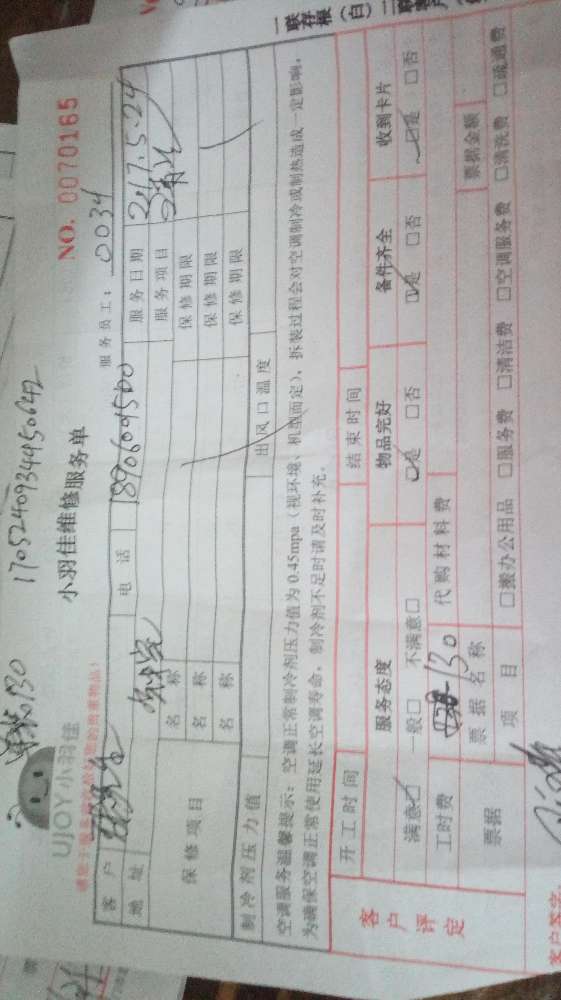 一联存根(白)二联
170524093449064
130
NO. 0070165
UJOY小羽佳
小羽佳维修服务单
服务员工: 0034
客户
电话 18960609500
服务日期 2017.5.24
地址
服务项目
保修项目
名称
保修期限
名称
保修期限
名称
保修期限
制冷剂压力值
出风口温度
空调服务温馨提示:空调正常制冷剂压力值为0.45mpa(视环境、机型而定),拆装过程会对空调制冷或制热造成一定影响,
为确保空调正常使用延长空调寿命,制冷剂不足时请及时补充。
开工时间
结束时间
客户评定
服务态度
物品完好
备件齐全
收到卡片
满意□ 一般□ 不满意□
□是 □否
□是 □否
□是 □否
工时费 130
代购材料费
票据
票据名称
票据金额
项目
□搬办公用品 □服务费 □清洁费 □空调服务费 □清洗费 □疏通费
客户签字